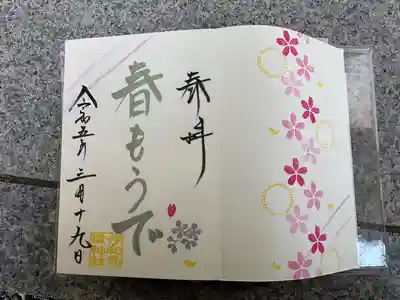 奉拝
春もうで
令和五年三月十九日